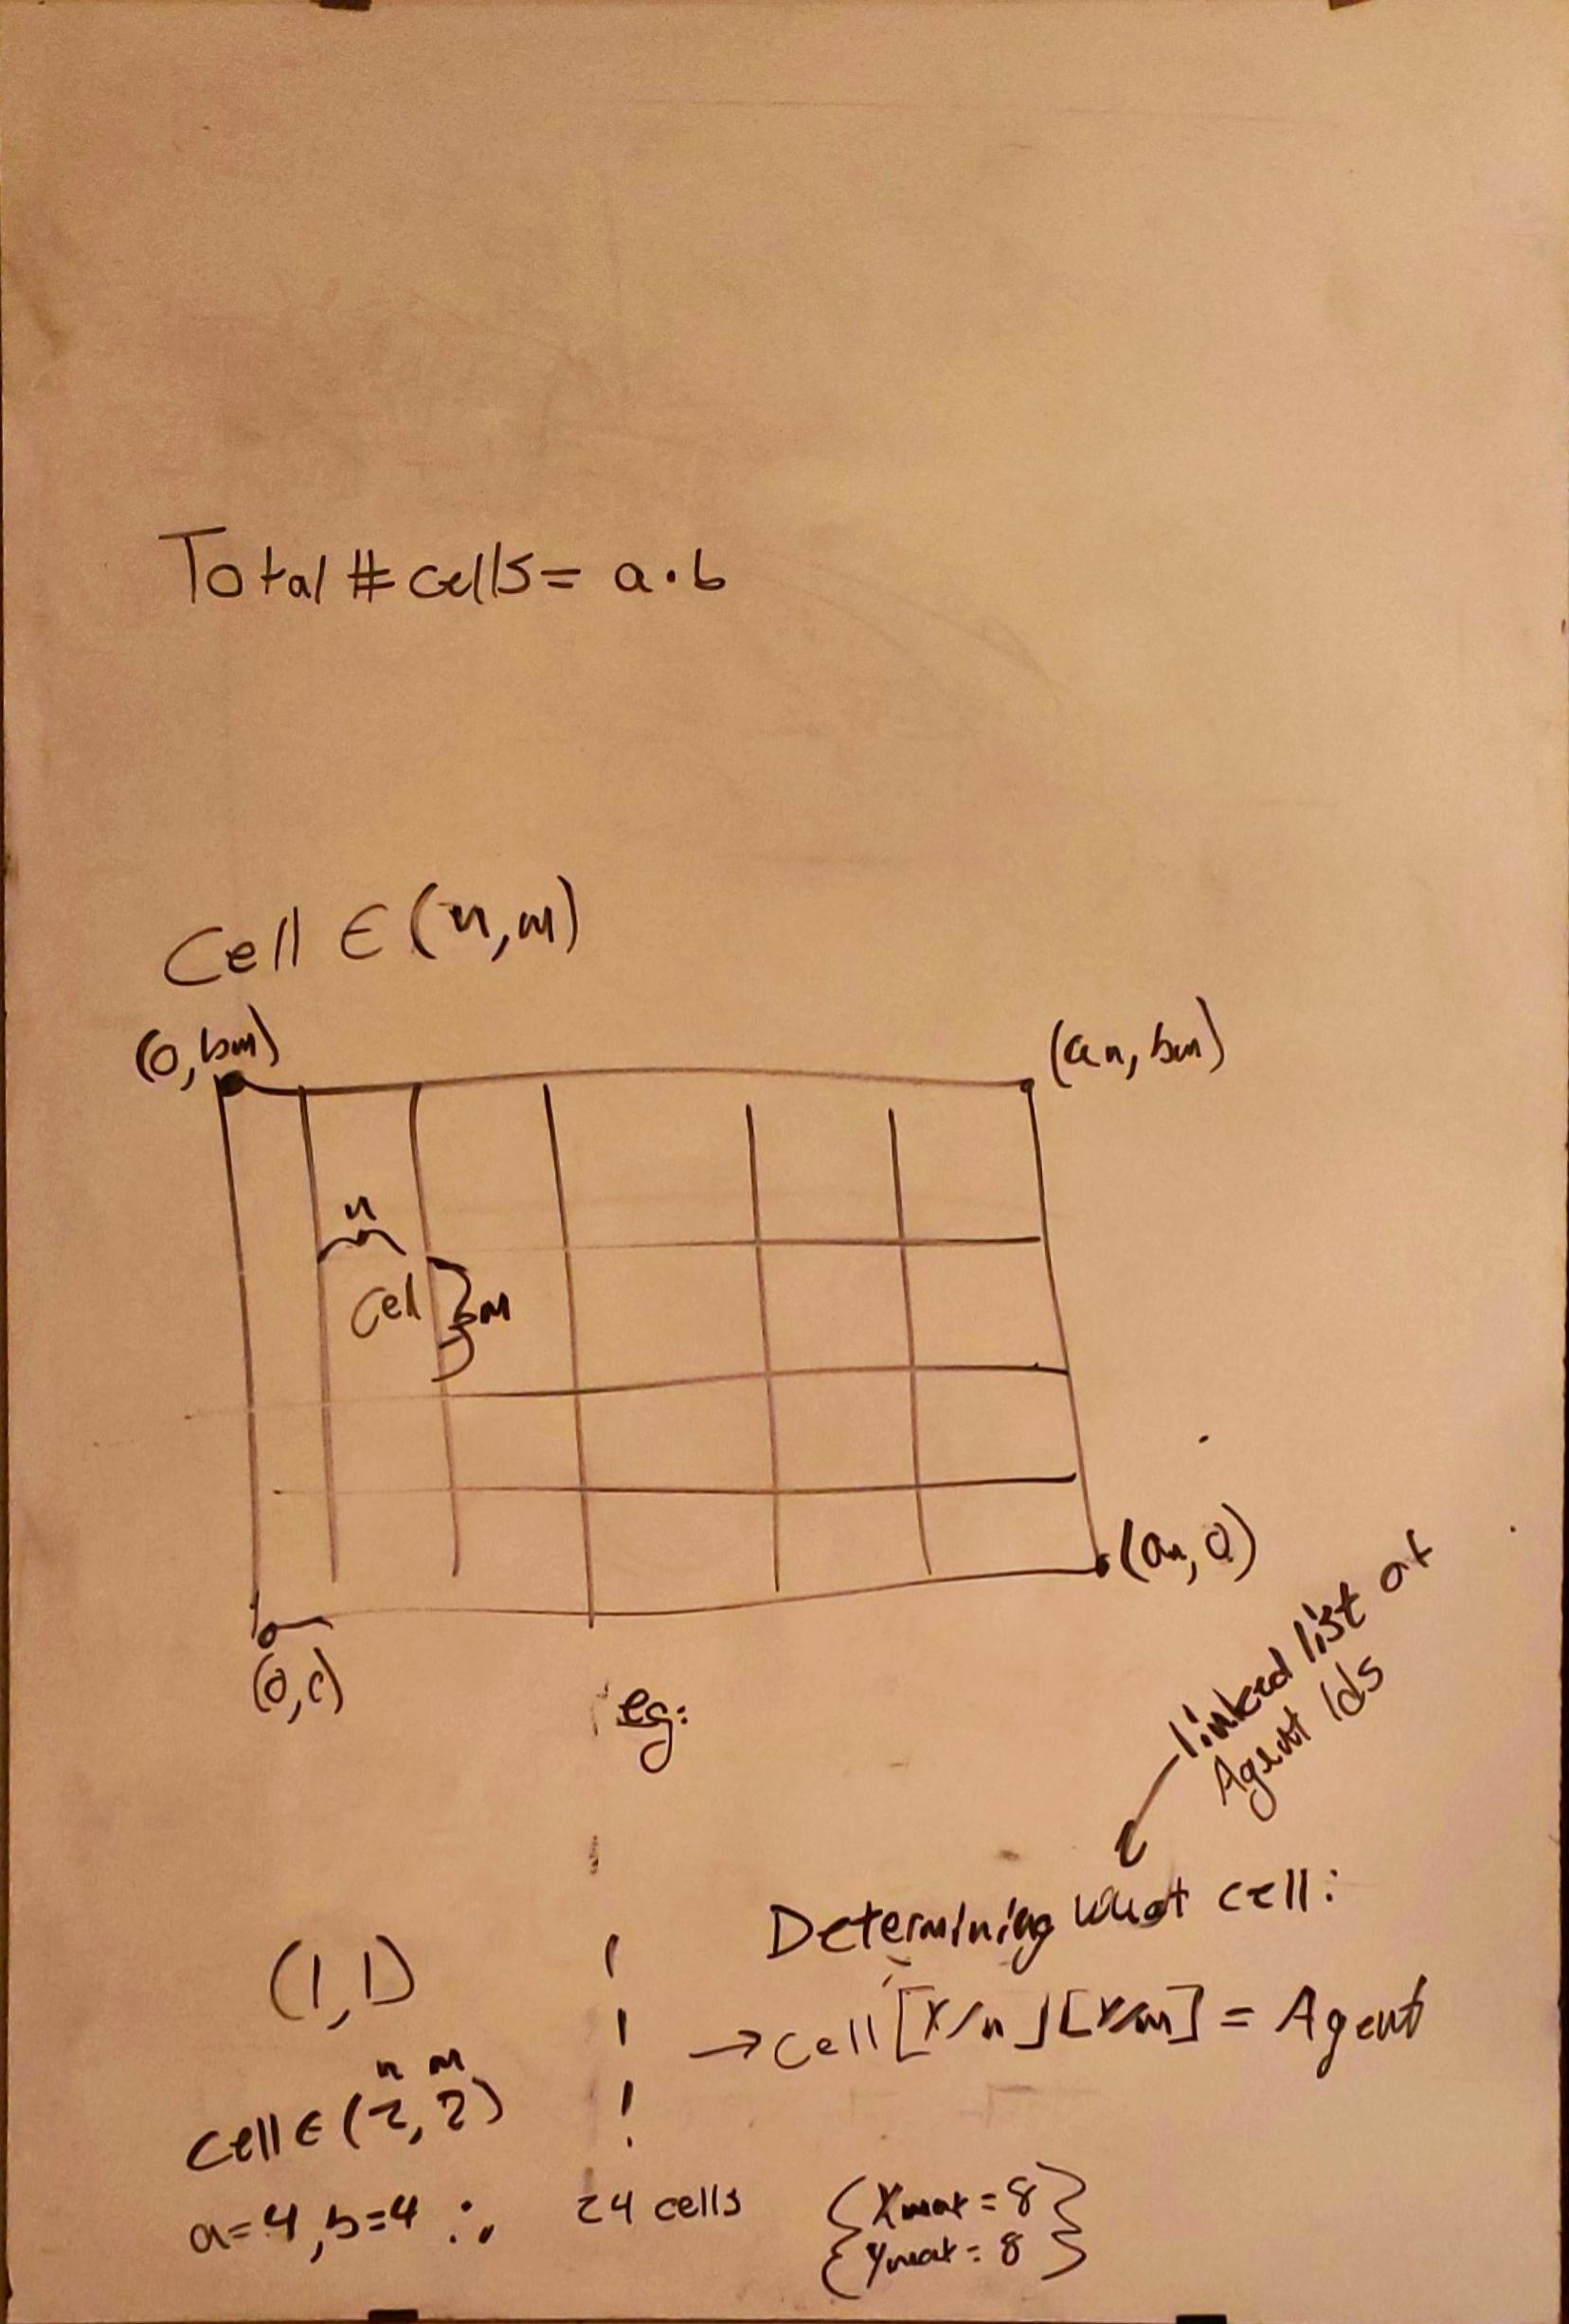 Total # cells = a·b
Cell ∈ (n,m)
(0,bm)
(an, bm)
n
Cell } m
(an, 0)
(0,0)
eg:
linked list of
Agent Ids
Determining what cell:
(1,1)
→ Cell [x/n][y/m] = Agent
n m
Cell ∈ (2,2)
a=4, b=4 ∴ 24 cells { Xmax = 8 }
{ Ymax = 8 }